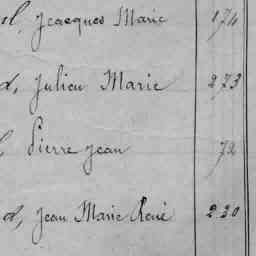 l, Jcacques Marie 174
d, Julien Marie 273
Pierre Jean 72
d, Jean Marie René 230